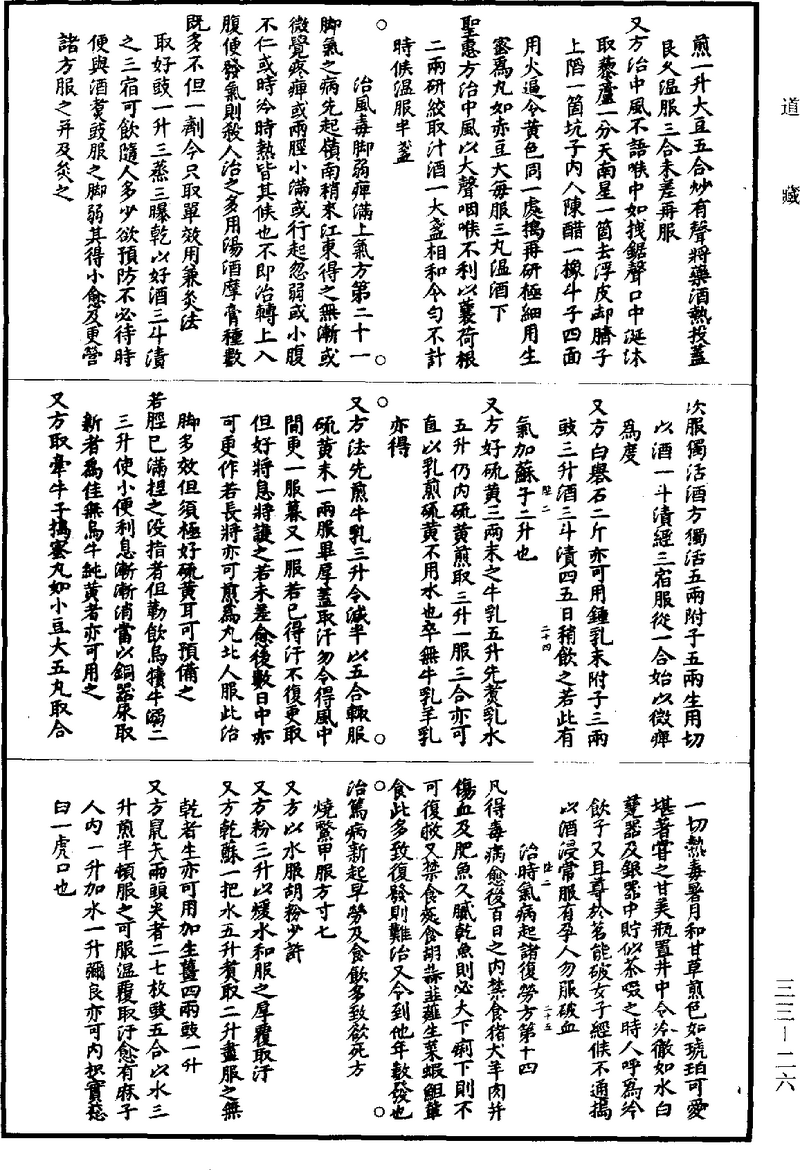 道藏
煎一升大豆五合炒有聲將藥酒熱投蓋
良久溫服三合未差再服
又方治中風不語喉中如拽鋸聲口中涎沫
取藜蘆一分天南星一箇去浮皮却臍子
上陷一箇坑子內入陳醋一橡斗子四面
用火逼令黃色同一處擣再研極細用生
蜜爲丸如赤豆大每服三丸溫酒下
聖惠方治中風以大聲咽喉不利以蘘荷根
二兩研絞取汁酒一大盞相和令勻不計
時候溫服半盞
治風毒脚弱痺滿上氣方第二十一
脚氣之病先起嶺南稍來江東得之無漸或
微覺疼痺或兩脛小滿或行起忽弱或小腹
不仁或時冷時熱皆其候也不即治轉上入
腹便發氣則殺人治之多用湯酒摩膏種數
既多不但一劑今只取單效用兼灸法
取好豉一升三蒸三曝乾以好酒三斗漬
之三宿可飲隨人多少欲預防不必待時
便與酒煮豉服之脚弱其得小愈及更營
諸方服之并及灸之
次服獨活酒方獨活五兩附子五兩生用切
以酒一斗漬經三宿服從一合始以微痺
爲度
又方白礬石二斤亦可用鍾乳末附子三兩
豉三升酒三斗漬四五日稍飲之若此有
氣加蘇子二升也
又方好硫黃三兩末之牛乳五升先煮乳水
五升仍內硫黃煎取三升一服三合亦可
直以乳煎硫黃不用水也卒無牛乳羊乳
亦得
又方法先煎牛乳三升令減半以五合輒服
硫黃末一兩服畢厚蓋取汗勿令得風中
間更一服暮又一服若已得汗不復更取
但好將息將護之若未差愈後數日中亦
可更作若長將亦可煎爲丸北人服此治
脚多效但須極好硫黃耳可預備之
若脛已滿捏之没指者但勤飲烏犢牛溺二
三升使小便利息漸漸消當以銅器尿取
新者爲佳無烏牛純黃者亦可用之
又方取牽牛子擣蜜丸如小豆大五丸取合
一切熱毒暑月和甘草煎色如琥珀可愛
堪著嘗之甘美瓶置井中令冷徹如水白
甆器及銀器中貯似茶啜之時人呼爲冷
飲子又且尊於茗能破女子經候不通擣
以酒浸常服有孕人勿服破血
治時氣病起諸復勞方第十四
凡得毒病愈後百日之內禁食猪犬羊肉并
傷血及肥魚久膩乾魚則必大下痢下則不
可復救又禁食麵食胡蒜韭薤生菜蝦䱉輩
食此多致復發則難治又令到他年數發也
治篤病新起早勞及食飲多致欲死方
燒鱉甲服方寸匕
又方以水服胡粉少許
又方粉三升以煖水和服之厚覆取汗
又方乾蘇一把水五升煮取二升盡服之無
乾者生亦可用加生薑四兩豉一升
又方鼠矢兩頭尖者二七枚豉五合以水三
升煎半頓服之可服溫覆取汗愈有麻子
人內一升加水一升彌良亦可內枳實葱
白一虎口也
三三—二六